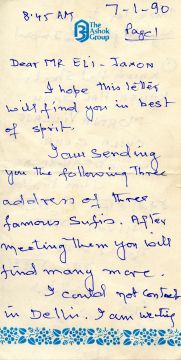 8:45 AM 7-1-90
The Ashok Group
Page 1
Dear MR Eli-Jaxon
I hope this letter
will find you in best
of spirit.
I am sending
you the following three
address of three
famous Sufis. After
meeting them you will
find many more.
I could not contact
in Delhi. I am writing